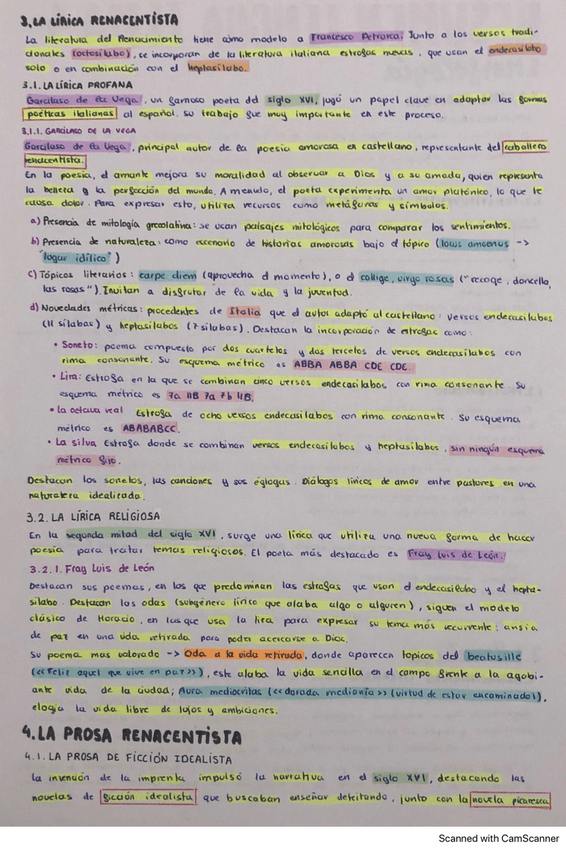 3. LA LÍRICA RENACENTISTA
La literatura del Renacimiento tiene como modelo a Francesco Petrarca. Junto a los versos tradi-
cionales (octosílabo), se incorporan de la literatura italiana estrofas nuevas, que usan el endecasílabo
solo o en combinación con el heptasílabo.
3.1. LA LÍRICA PROFANA
Garcilaso de la Vega, un famoso poeta del siglo XVI, jugó un papel clave en adaptar las formas
poéticas italianas al español. Su trabajo fue muy importante en este proceso.
3.1.1. GARCILASO DE LA VEGA
Garcilaso de la Vega, principal autor de la poesía amorosa en castellano, representante del caballero
renacentista.
En la poesía, el amante mejora su moralidad al observar a Dios y a su amada, quien representa
la belleza y la perfección del mundo. A menudo, el poeta experimenta un amor platónico, lo que le
causa dolor. Para expresar esto, utiliza recursos como metáforas y símbolos.
a) Presencia de mitología grecolatina: se usan paisajes mitológicos para comparar los sentimientos.
b) Presencia de naturaleza: como escenario de historias amorosas bajo el tópico (locus amoenus ->
"lugar idílico")
c) Tópicos literarios: carpe diem (aprovecha el momento), o el collige, virgo rosas ("recoge, doncella,
las rosas"). Invitan a disfrutar de la vida y la juventud.
d) Novedades métricas: procedentes de Italia que el autor adaptó al castellano: versos endecasílabos
(11 sílabas) y heptasílabos (7 sílabas). Destacan la incorporación de estrofas como:
• Soneto: poema compuesto por dos cuartetos y dos tercetos de versos endecasílabos con
rima consonante. Su esquema métrico es ABBA ABBA CDE CDE.
• Lira: Estrofa en la que se combinan cinco versos endecasílabos con rima consonante. Su
esquema métrico es 7a 11B 7a 7b 11B.
• La octava real Estrofa de ocho versos endecasílabos con rima consonante. Su esquema
métrico es ABABABCC.
• La silva Estrofa donde se combinan versos endecasílabos y heptasílabos, sin ningún esquema
métrico fijo.
Destacan los sonetos, las canciones y sus églogas. Diálogos líricos de amor entre pastores en una
naturaleza idealizada.
3.2. LA LÍRICA RELIGIOSA
En la segunda mitad del siglo XVI, surge una lírica que utiliza una nueva forma de hacer
poesía para tratar temas religiosos. El poeta más destacado es Fray Luis de León.
3.2.1. Fray Luis de León
Destacan sus poemas, en los que predominan las estrofas que usan el endecasílabo y el hepta-
sílabo. Destacan las odas (subgénero lírico que alaba algo o alguien), siguen el modelo
clásico de Horacio, en las que usa la lira para expresar su tema más recurrente: ansia
de paz en una vida retirada para poder acercarse a Dios.
Su poema más valorado -> Oda a la vida retirada, donde aparecen tópicos del beatus ille
(<<Feliz aquel que vive en paz>>), este alaba la vida sencilla en el campo frente a la agobi-
ante vida de la ciudad; Aura mediocritas (<<dorada medianía>> (virtud de estar encaminados),
elogia la vida libre de lujos y ambiciones.
4. LA PROSA RENACENTISTA
4.1. LA PROSA DE FICCIÓN IDEALISTA
La invención de la imprenta impulsó la narrativa en el siglo XVI, destacando las
novelas de ficción idealista que buscaban enseñar deleitando, junto con la novela picaresca
Scanned with CamScanner